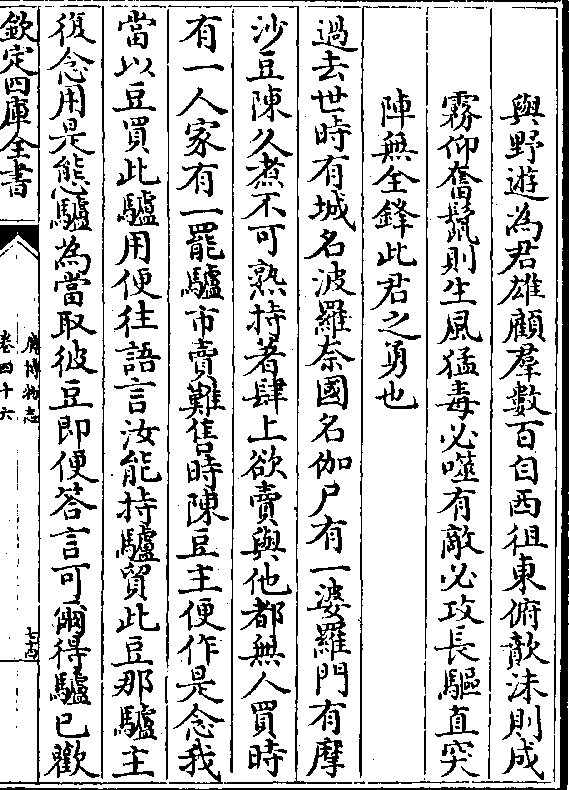 與野遊為君雄顧羣數百自西徂東俯歕沬則成
霧仰奮鬛則生風猛毒必噬有敵必攻長驅直突
陣無全鋒此君之勇也
過去世時有城名波羅奈國名伽尸有一婆羅門有摩
沙豆陳久煮不可熟持著肆上欲賣與他都無人買時
有一人家有一𦋺驢市賣難售時陳豆主便作是念我
當以豆買此驢用便往語言汝能持驢貿此豆那驢主
復念用是態驢為當取彼豆即便答言可爾得驢已歡
欽定四庫全書
廣博物志
卷四十六